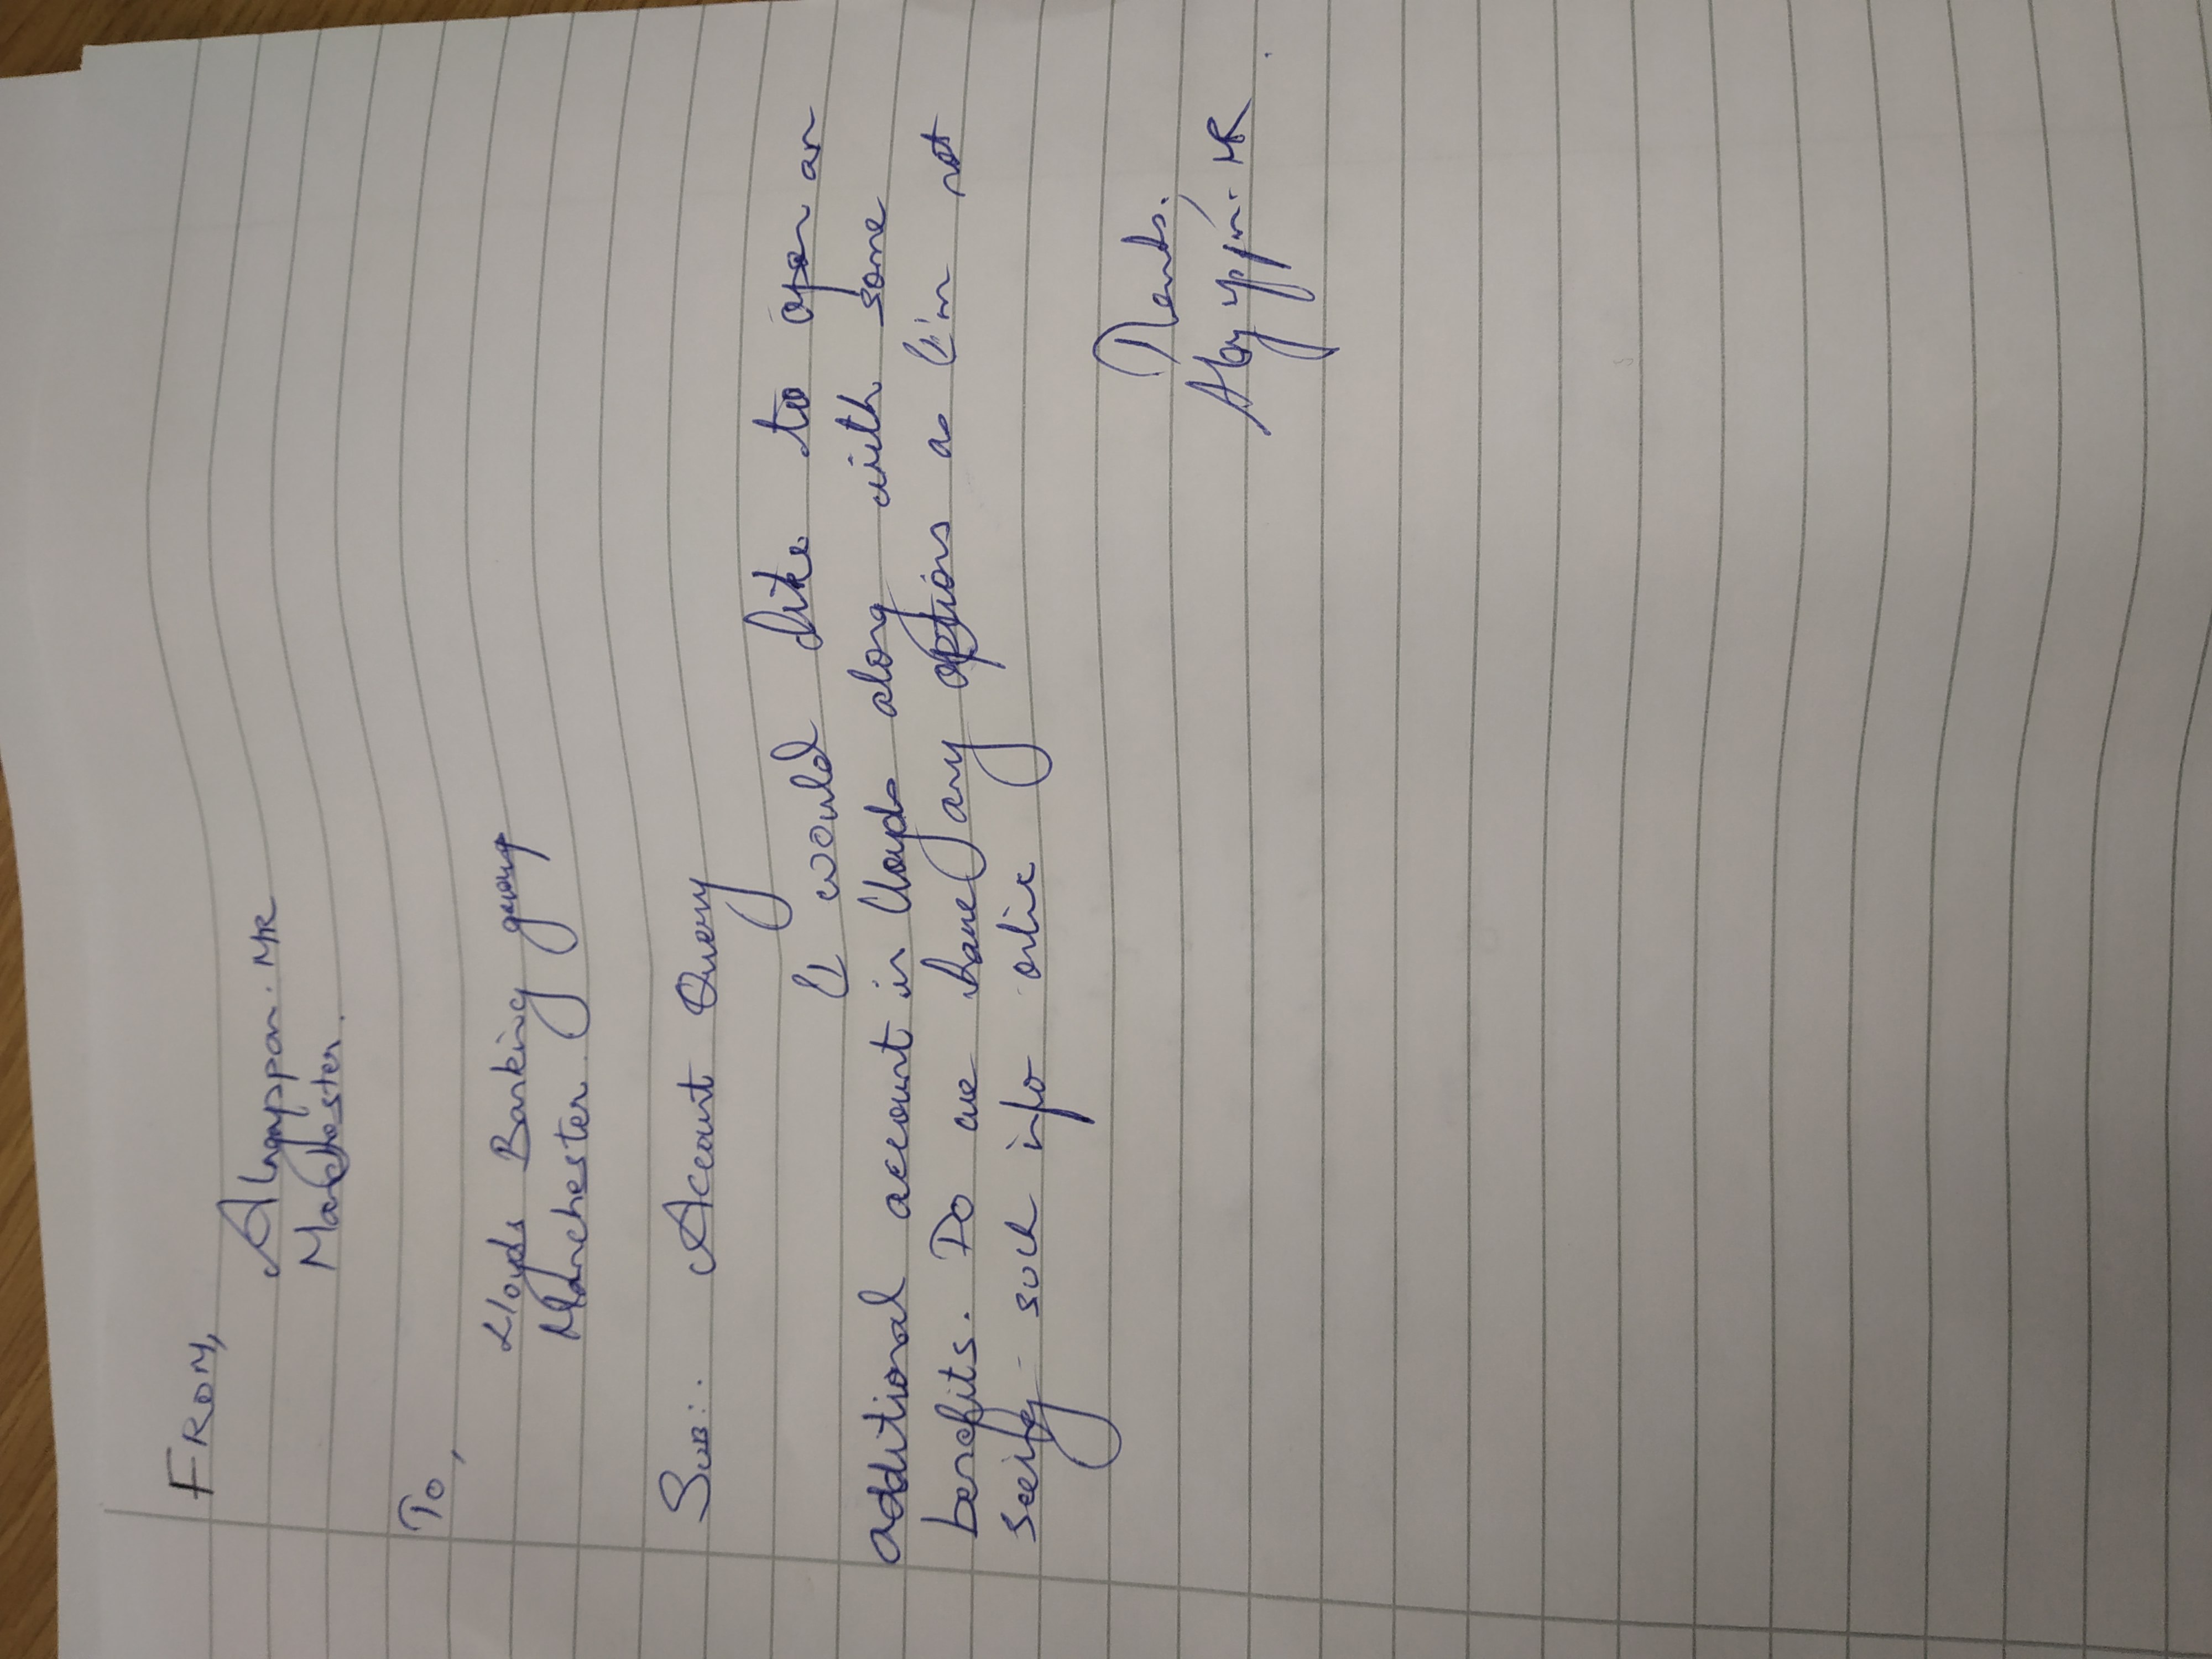 FROM,
Alagappan. MR
Manchester.
To,
Lloyds Banking group
Manchester.
Sub:. Account Query
I would like to open an
additional account in Lloyds along with some
benefits. Do we have any options as I'm not
seeing such info online
Thanks,
Alagappan. MR